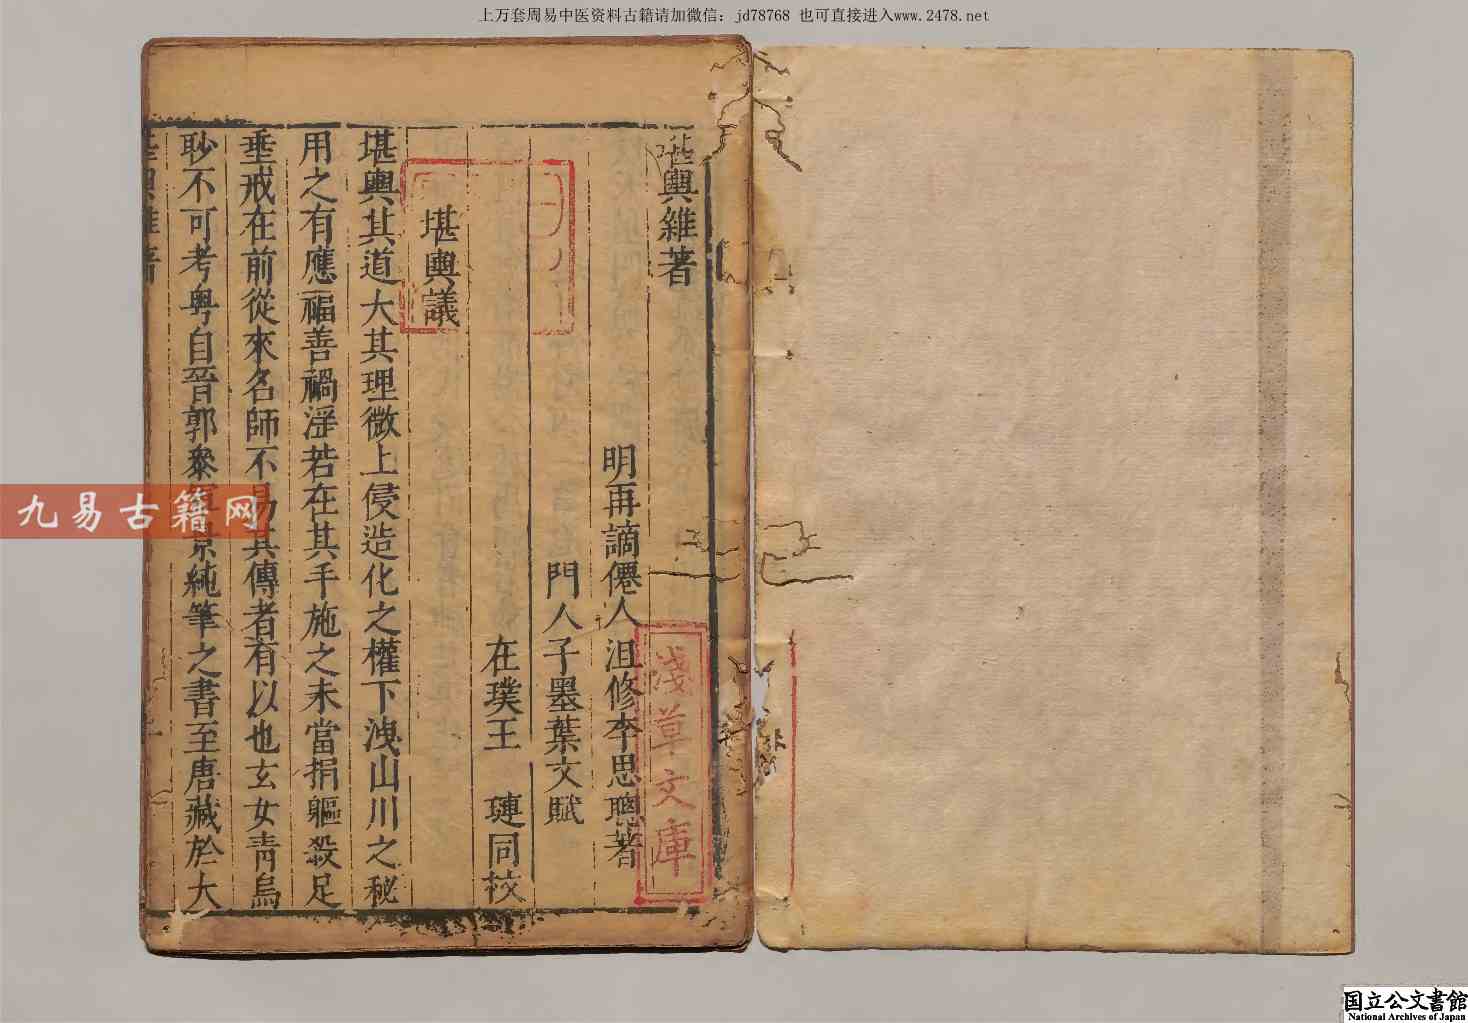 上万套周易中医资料古籍请加微信：jd78768 也可直接进入www.2478.net
堪輿雜著
明再謫僊人沮修李思聰著
門人子墨葉文賦
在璞王 璉同校
堪輿議
堪輿其道大其理微上侵造化之權下洩山川之秘
用之有應福善禍淫若在其手施之未當捐軀殺足
垂戒在前從來名師不易其傳者有以也玄女靑烏
眇不可考粵自晉郭叅軍景純筆之書至唐藏於大
淺草文庫
九易古籍网
国立公文書館
National Archives of Japan